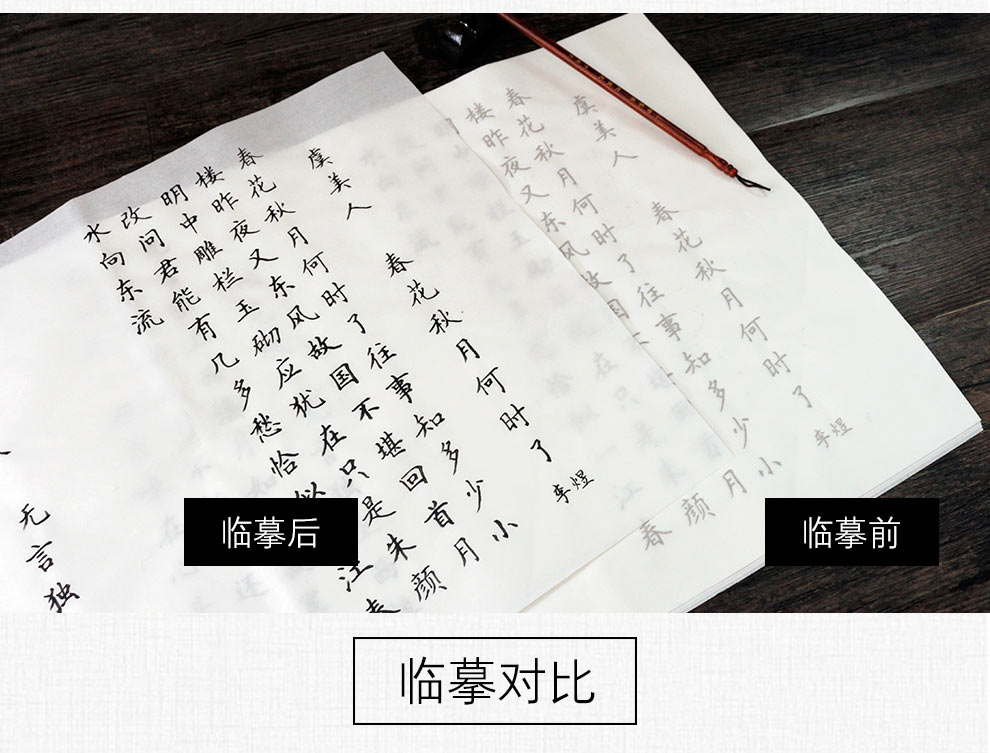 虞美人
春花秋月何时了
李煜
春花秋月何时了往事知多少小
楼昨夜又东风故国不堪回首月
明中雕栏玉砌应犹在只是朱颜
改问君能有几多愁恰似江春
水向东流
无言独
虞美人
春花秋月何时了
李煜
春花秋月何时了往事知多少小
楼昨夜又东风故国月
颜
春
临摹后
临摹前
临摹对比